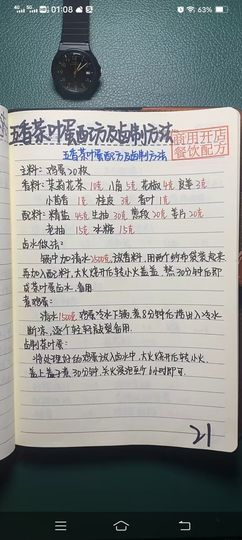 01:08
63%
五香茶叶蛋配方及卤制方法
商用开店
餐饮配方
五香茶叶蛋配方及卤制方法
主料: 鸡蛋20枚
香料: 茉莉花茶 10克 八角 5克 花椒 4克 良姜 3克
小茴香 1克 桂皮 3克 香叶 1克
配料: 精盐 45克 生抽 30克 葱段 20克 姜片 20克
老抽 15克 冰糖 15克
卤水做法:
锅中加清水2500克, 放香料, 用两个纱布袋装起来
再加入配料, 大火烧开后转小火盖盖 熬30分钟后即
成茶叶蛋卤水, 备用
煮鸡蛋:
清水1500克, 鸡蛋冷水下锅, 煮8分钟后捞出入冷水
断凉, 逐个轻轻敲裂备用.
卤制茶叶蛋:
将处理好的鸡蛋放入卤水中, 大火烧开后转小火,
盖上盖子煮30分钟, 关火浸泡至个6小时即可.
21